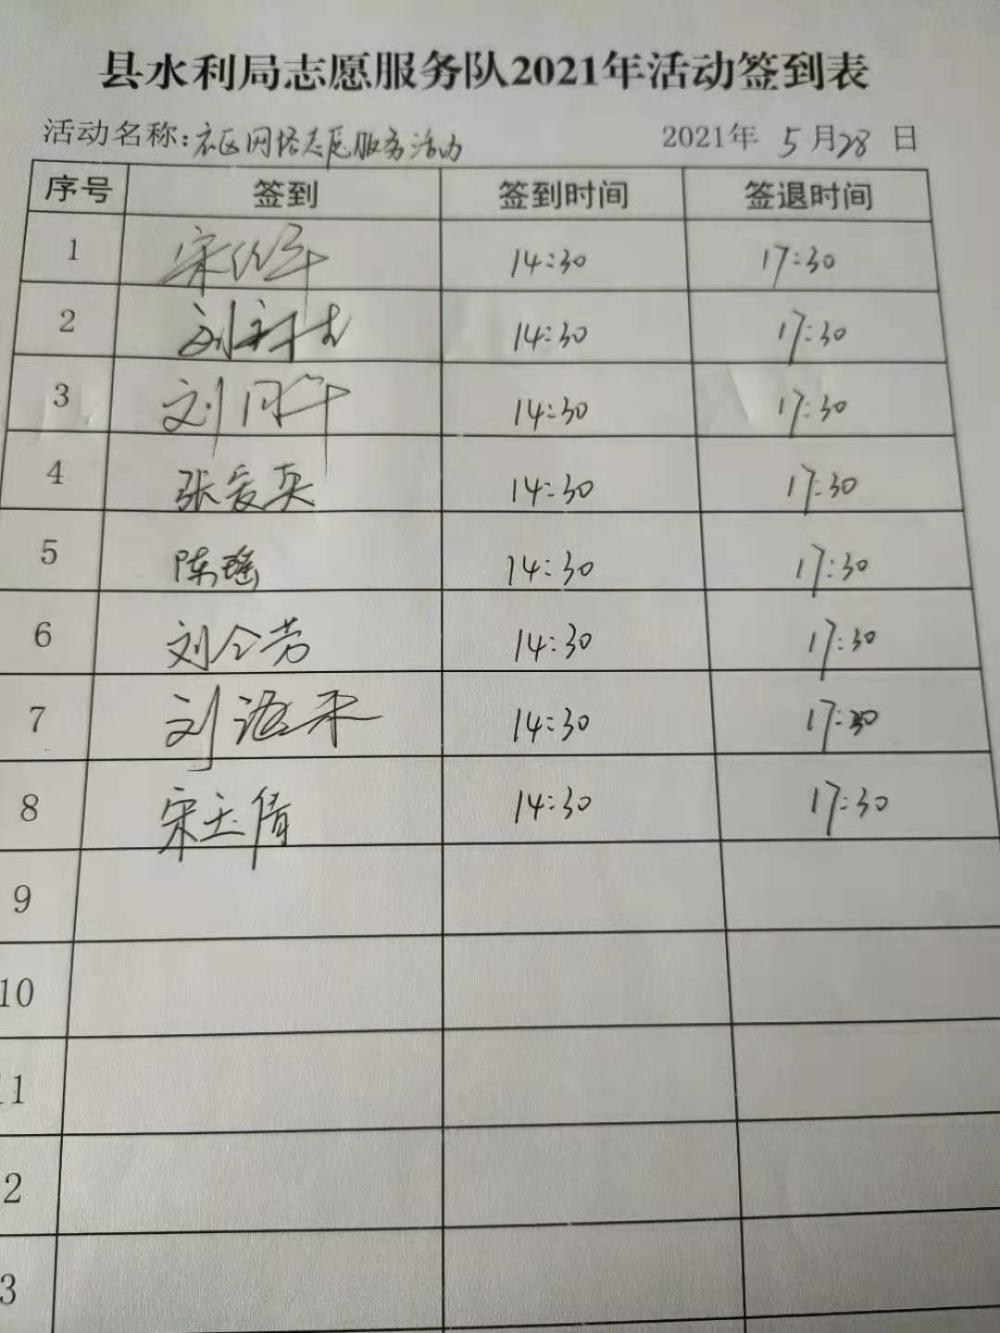 县水利局志愿服务队2021年活动签到表
活动名称:社区网格志愿服务活动 2021年 5 月 28 日
序号 签到 签到时间 签退时间
1 宋 14:30 17:30
2 刘 14:30 17:30
3 刘 14:30 17:30
4 张爱英 14:30 17:30
5 陈瑶 14:30 17:30
6 刘令芳 14:30 17:30
7 刘 14:30 17:30
8 宋玉倩 14:30 17:30
9
10
11
2
3